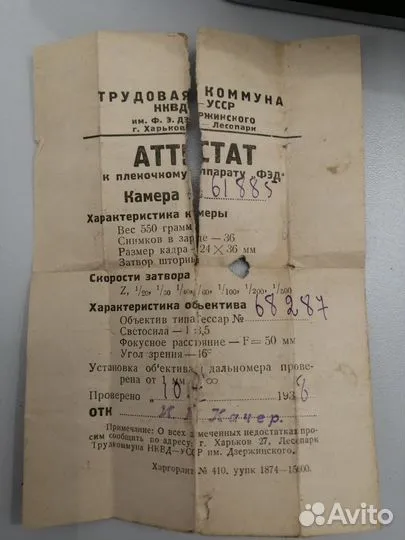 ТРУДОВАЯ КОММУНА
НКВД—УССР
им. Ф. Э. ДЗЕРЖИНСКОГО
г. Харьков — Лесопарк
АТТЕСТАТ
к пленочному аппарату "ФЭД"
Камера 61885
Характеристика камеры
Вес 550 грамм
Снимков в заряде — 36
Размер кадра — 24 × 36 мм
Затвор шторный
Скорости затвора
Z, 1/20, 1/30 1/40, 1/60, 1/100, 1/200, 1/500
Характеристика объектива 68287
Объектив типа Тессар №
Светосила — 1:3,5
Фокусное расстояние — F = 50 мм
Угол зрения — 46°
Установка объектива и дальномера проверена от 1 мм ∞
Проверено 193 6
ОТК Качер.
Примечание: О всех замеченных недостатках просим сообщить по адресу: г. Харьков 27, Лесопарк
Трудкоммуна НКВД—УССР им. Дзержинского.
Харгорлит № 410. уупк 1874—15000.
Avito